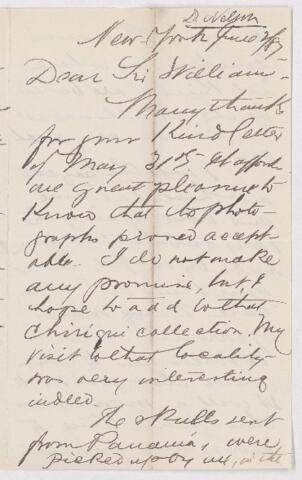 D. Nelson
New York June /87
Dear Sir William
Many thanks
for your Kind letter
of May 31st It affords
me great pleasure to
Know that the photo-
graphs proved accept-
able. I do not make
any promise, but, I
hope to add to that
Chiriqui collection. My
visit to that locality
was very interesting
indeed.
The skulls sent
from Panamá, were
picked up by me, in the